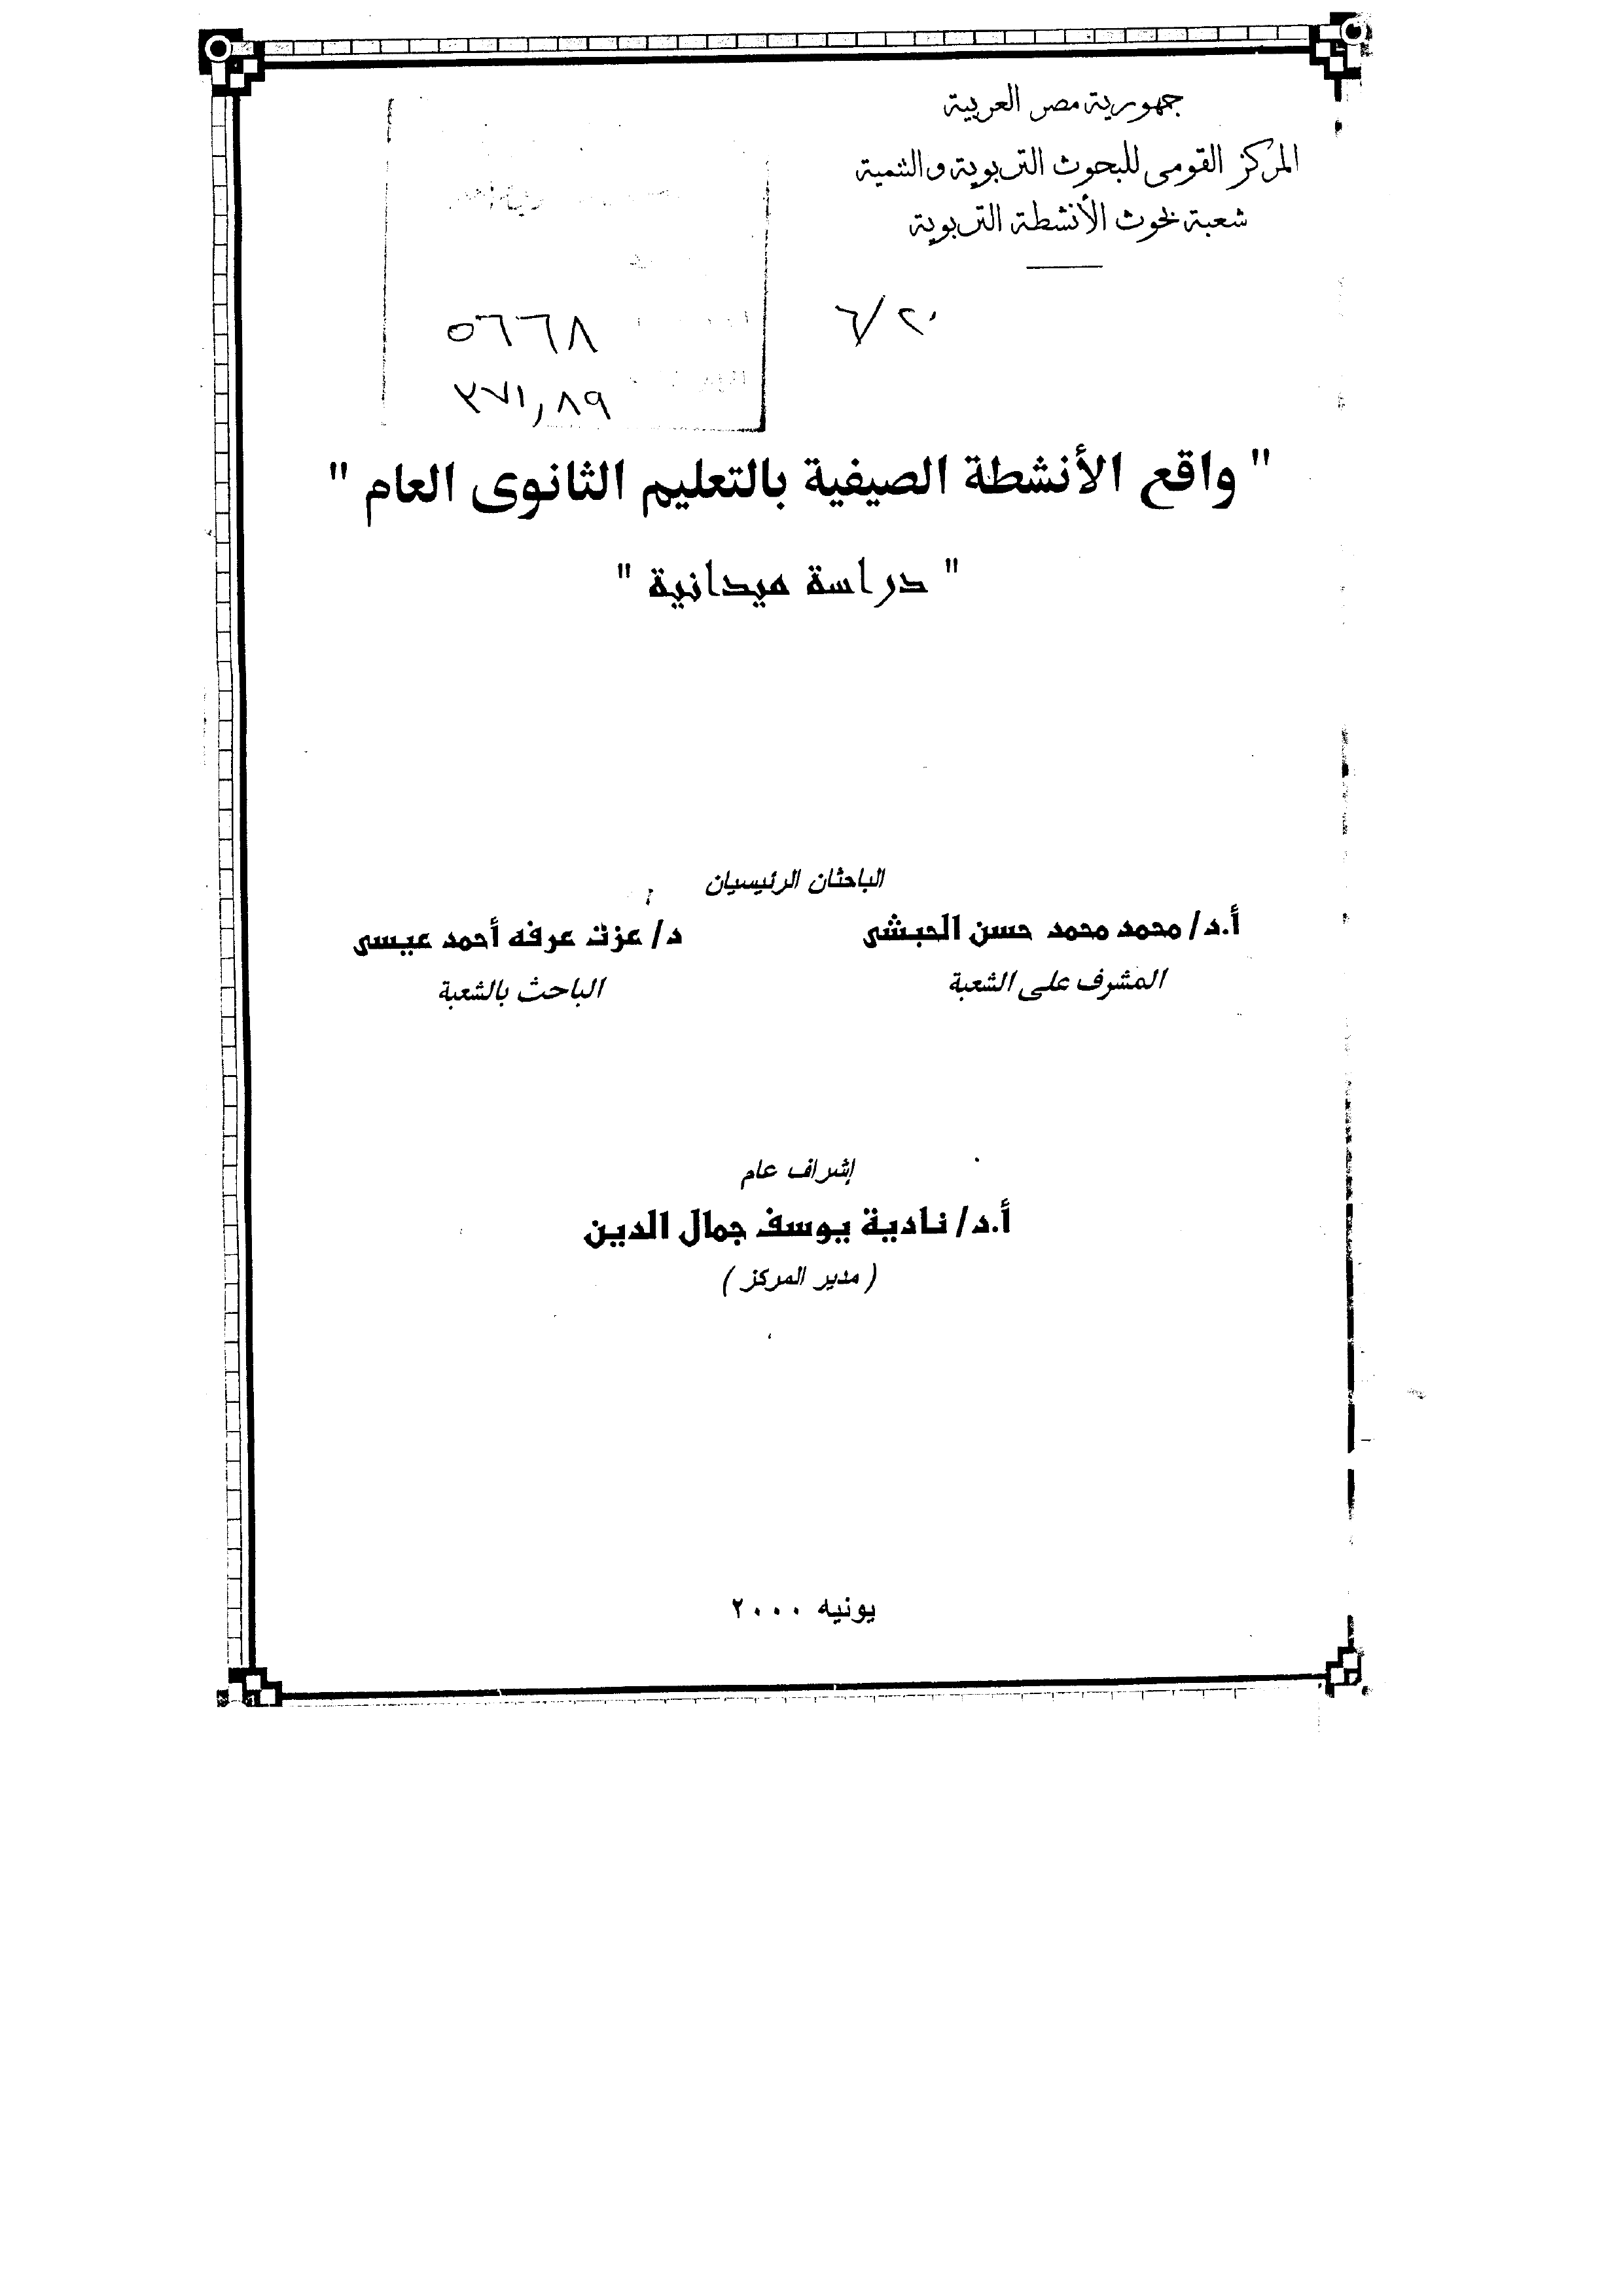 جمهورية مصر العربية
المركز القومى للبحوث التربوية والتنمية
شعبة بحوث الأنشطة التربوية
٥٦٦٨
٣٧١,٨٩
" واقع الأنشطة الصيفية بالتعليم الثانوى العام "
" دراسة ميدانية "
الباحثان الرئيسيان
أ.د/ محمد محمد حسن الحبشى
د/ عزت عرفه أحمد عيسى
المشرف على الشعبة
الباحث بالشعبة
إشراف عام
أ.د/ نادية يوسف جمال الدين
( مدير المركز )
يونيه ٢٠٠٠